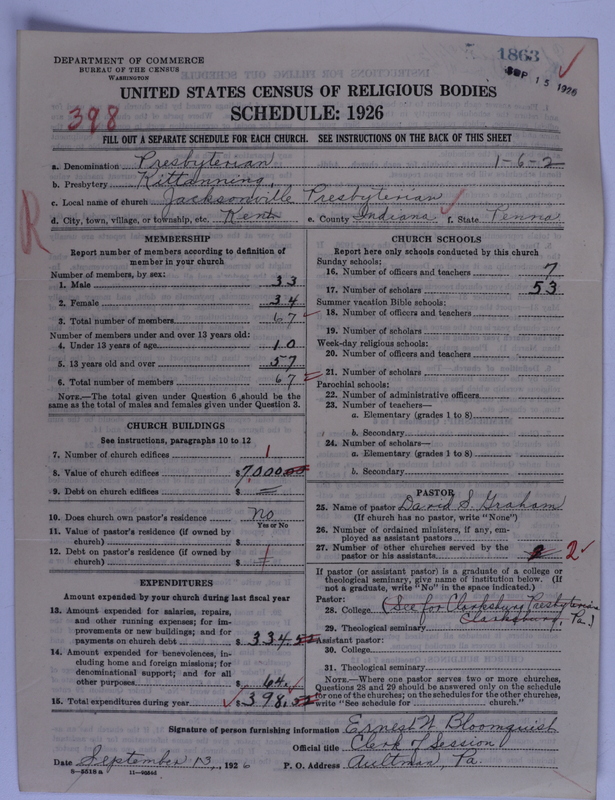 1863
SEP 15 1926
DEPARTMENT OF COMMERCE
BUREAU OF THE CENSUS
WASHINGTON
UNITED STATES CENSUS OF RELIGIOUS BODIES
SCHEDULE: 1926
398
FILL OUT A SEPARATE SCHEDULE FOR EACH CHURCH. SEE INSTRUCTIONS ON THE BACK OF THIS SHEET
a. Denomination Presbyterian 1-6-2
b. Presbytery Kittanning,
c. Local name of church Jacksonville Presbyterian
d. City, town, village, or township, etc. Kent e. County Indiana f. State Penna
R
MEMBERSHIP
Report number of members according to definition of member in your church
Number of members, by sex:
1. Male 33
2. Female 34
3. Total number of members 67
Number of members under and over 13 years old:
4. Under 13 years of age 10
5. 13 years old and over 57
6. Total number of members 67
NOTE.—The total given under Question 6 should be
same as the total of males and females given under Question 3.
CHURCH BUILDINGS
See instructions, paragraphs 10 to 12
7. Number of church edifices 1
8. Value of church edifices $7000.00
9. Debt on church edifices $ —
10. Does church own pastor's residence No
Yes or No
11. Value of pastor's residence (if owned by
church) $
12. Debt on pastor's residence (if owned by
church) $
EXPENDITURES
Amount expended by your church during last fiscal year
13. Amount expended for salaries, repairs,
and other running expenses; for im-
provements or new buildings; and for
payments on church debt $ 334.52
14. Amount expended for benevolences, in-
cluding home and foreign missions; for
denominational support; and for all
other purposes $ 64
15. Total expenditures during year $ 398.52
CHURCH SCHOOLS
Report here only schools conducted by this church
Sunday schools:
16. Number of officers and teachers 7
17. Number of scholars 53
Summer vacation Bible schools:
18. Number of officers and teachers
19. Number of scholars
Week-day religious schools:
20. Number of officers and teachers
21. Number of scholars
Parochial schools:
22. Number of administrative officers
23. Number of teachers—
a. Elementary (grades 1 to 8)
b. Secondary
24. Number of scholars—
a. Elementary (grades 1 to 8)
b. Secondary
PASTOR
25. Name of pastor David S. Graham
(If church has no pastor, write "None")
26. Number of ordained ministers, if any, em-
ployed as assistant pastors
27. Number of other churches served by the
pastor or his assistants 2 2
If pastor (or assistant pastor) is a graduate of a college or
theological seminary, give name of institution below. (If
not a graduate, write "No" in the space indicated.)
Pastor:
28. College (See for Clarksburg Presbyterian
29. Theological seminary Clarksburg, Pa.)
Assistant pastor:
30. College
31. Theological seminary
NOTE.—Where one pastor serves two or more churches,
Questions 28 and 29 should be answered only on the schedule
for one of the churches; on the schedules for the other churches,
write "See schedule for church."
Signature of person furnishing information Ernest W Bloomquist
Official title Clerk of Session
Date September 13, 1926 P. O. Address Aultman, Pa.
8—5518 a